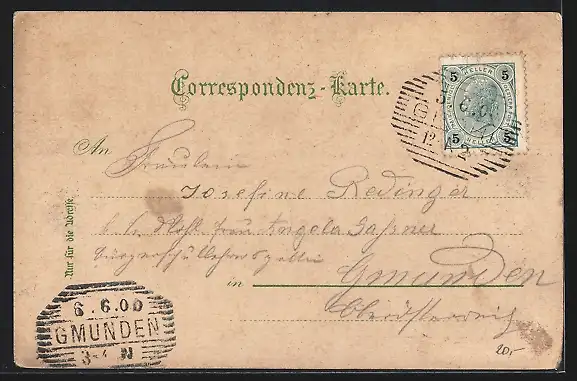 5 HELLER 5
5 5
Correspondenz-Karte.
An
Fräulein
Josefine Redinger
Nur für die Adresse.
Frau Angela Gaßner
Bürgerschullehrersgattin
in Gmunden
Oberösterreich
6.6.00
GMUNDEN
20,-